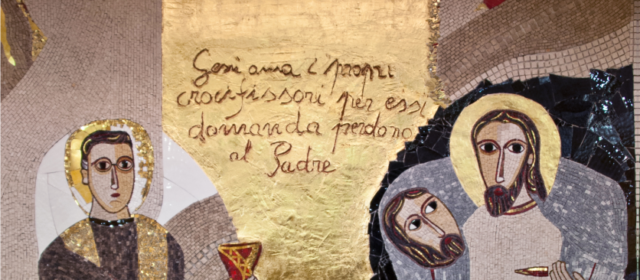 Gesù ama i propri
crocifissori per essi
domanda perdono
al Padre